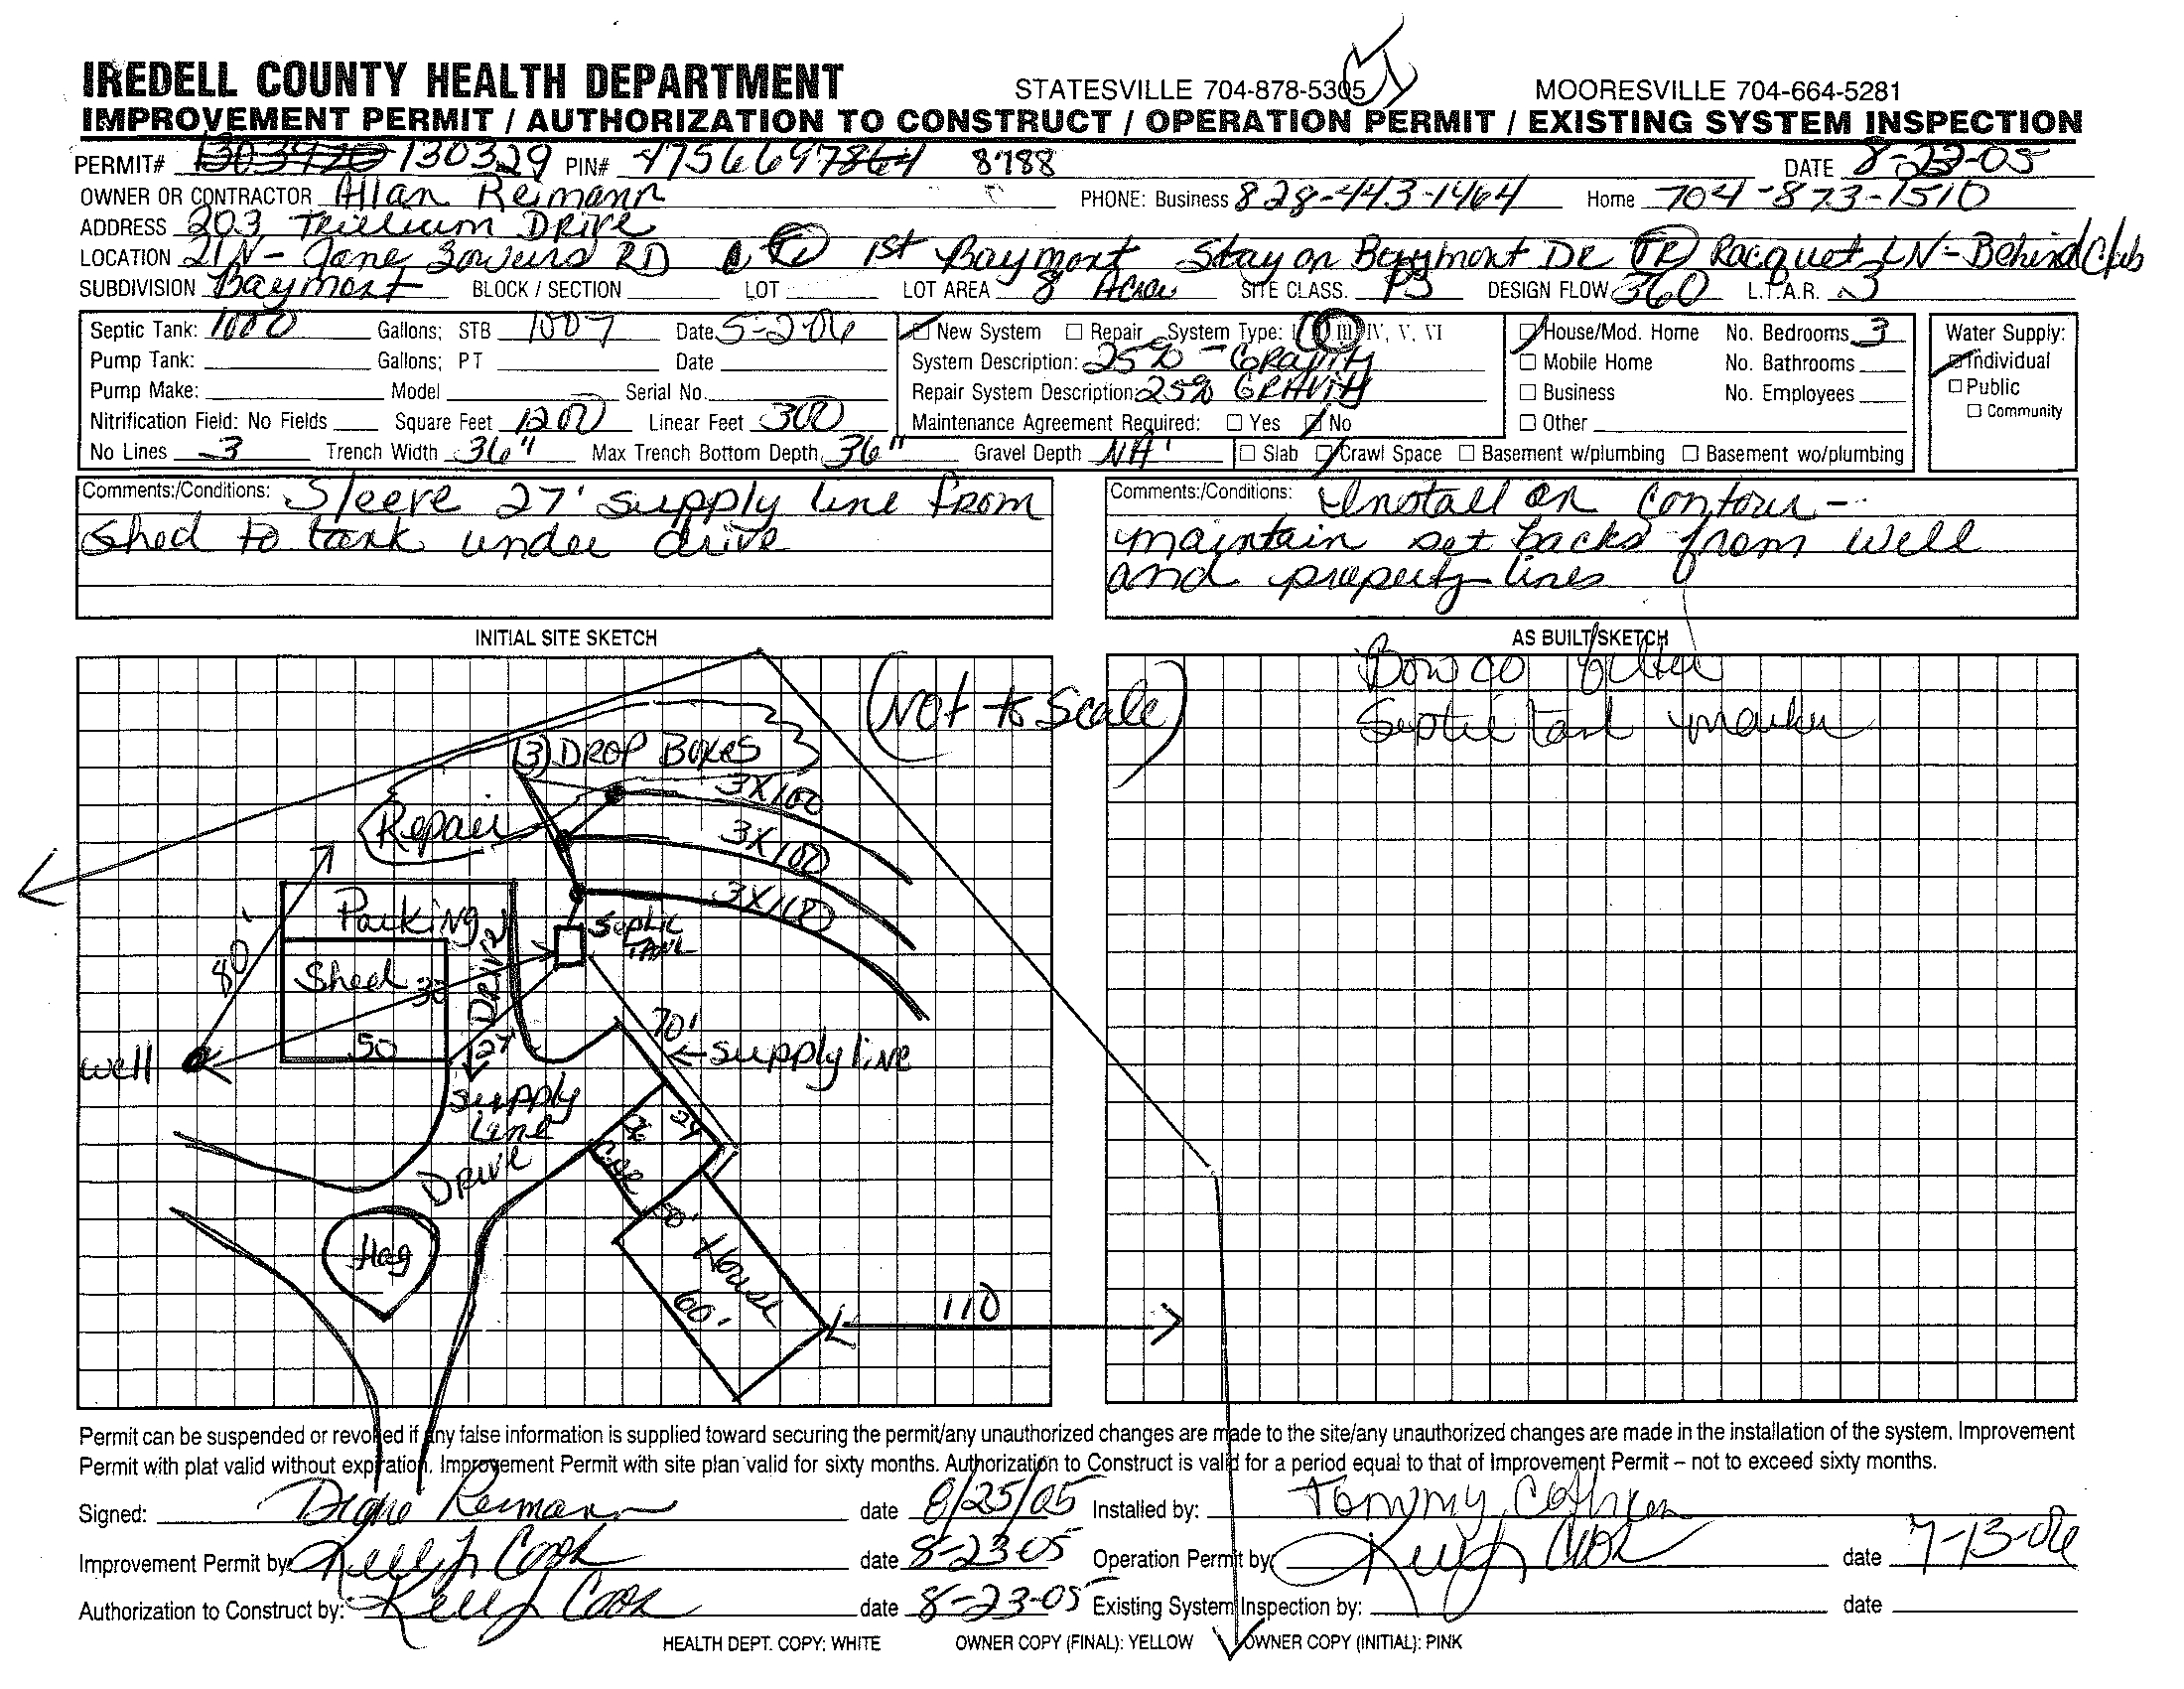 IREDELL COUNTY HEALTH DEPARTMENT STATESVILLE 704-878-5305 MOORESVILLE 704-664-5281
IMPROVEMENT PERMIT / AUTHORIZATION TO CONSTRUCT / OPERATION PERMIT / EXISTING SYSTEM INSPECTION
PERMIT# 1303970 130329 PIN# 4756697864 8788 DATE 8-23-05
OWNER OR CONTRACTOR Allan Reimann PHONE: Business 828-443-1464 Home 704-873-1510
ADDRESS 203 Trillium Drive
LOCATION 21N - Jane Sowers RD 1st Baymont Stay on Baymont DR TR Racquet LN - Behind Club
SUBDIVISION Baymont BLOCK / SECTION LOT LOT AREA 8 Acre SITE CLASS. PS DESIGN FLOW 360 L.T.A.R. .3
Septic Tank: 1000 Gallons; STB 1007 Date 5-2-06 New System Repair System Type: I II III IV, V, VI House/Mod. Home No. Bedrooms 3 Water Supply:
Pump Tank: Gallons; PT Date System Description: 25% - GRAVITY Mobile Home No. Bathrooms Individual
Pump Make: Model Serial No. Repair System Description: 25% GRAVITY Business No. Employees Public
Nitrification Field: No Fields Square Feet 1200 Linear Feet 300 Maintenance Agreement Required: Yes No Other Community
No Lines 3 Trench Width 36" Max Trench Bottom Depth 36" Gravel Depth NA Slab Crawl Space Basement w/plumbing Basement wo/plumbing
Comments:/Conditions: Sleeve 27' supply line from
shed to tank under drive
Comments:/Conditions: Install on contour -
maintain set backs from well
and property lines
INITIAL SITE SKETCH AS BUILT SKETCH
Bowco filter
Septic tank marker
(Not to Scale)
(3) DROP BOXES
3X100
Repair
3X100
3X100
Parking
Septic
TANK
80'
Shed 30
DRIVE
50
27'
70'
Well
supply line
Supply
Line
24
Drive
GAR
Hag
50'
House
60'
110
Permit can be suspended or revoked if any false information is supplied toward securing the permit/any unauthorized changes are made to the site/any unauthorized changes are made in the installation of the system. Improvement
Permit with plat valid without expiration. Improvement Permit with site plan valid for sixty months. Authorization to Construct is valid for a period equal to that of Improvement Permit – not to exceed sixty months.
Signed: Diane Reimann date 8/25/05 Installed by: Tommy Cothren
Improvement Permit by: Kelly Cook date 8-23-05 Operation Permit by: Kelly Cook date 7-13-06
Authorization to Construct by: Kelly Cook date 8-23-05 Existing System Inspection by: date
HEALTH DEPT. COPY: WHITE OWNER COPY (FINAL): YELLOW OWNER COPY (INITIAL): PINK